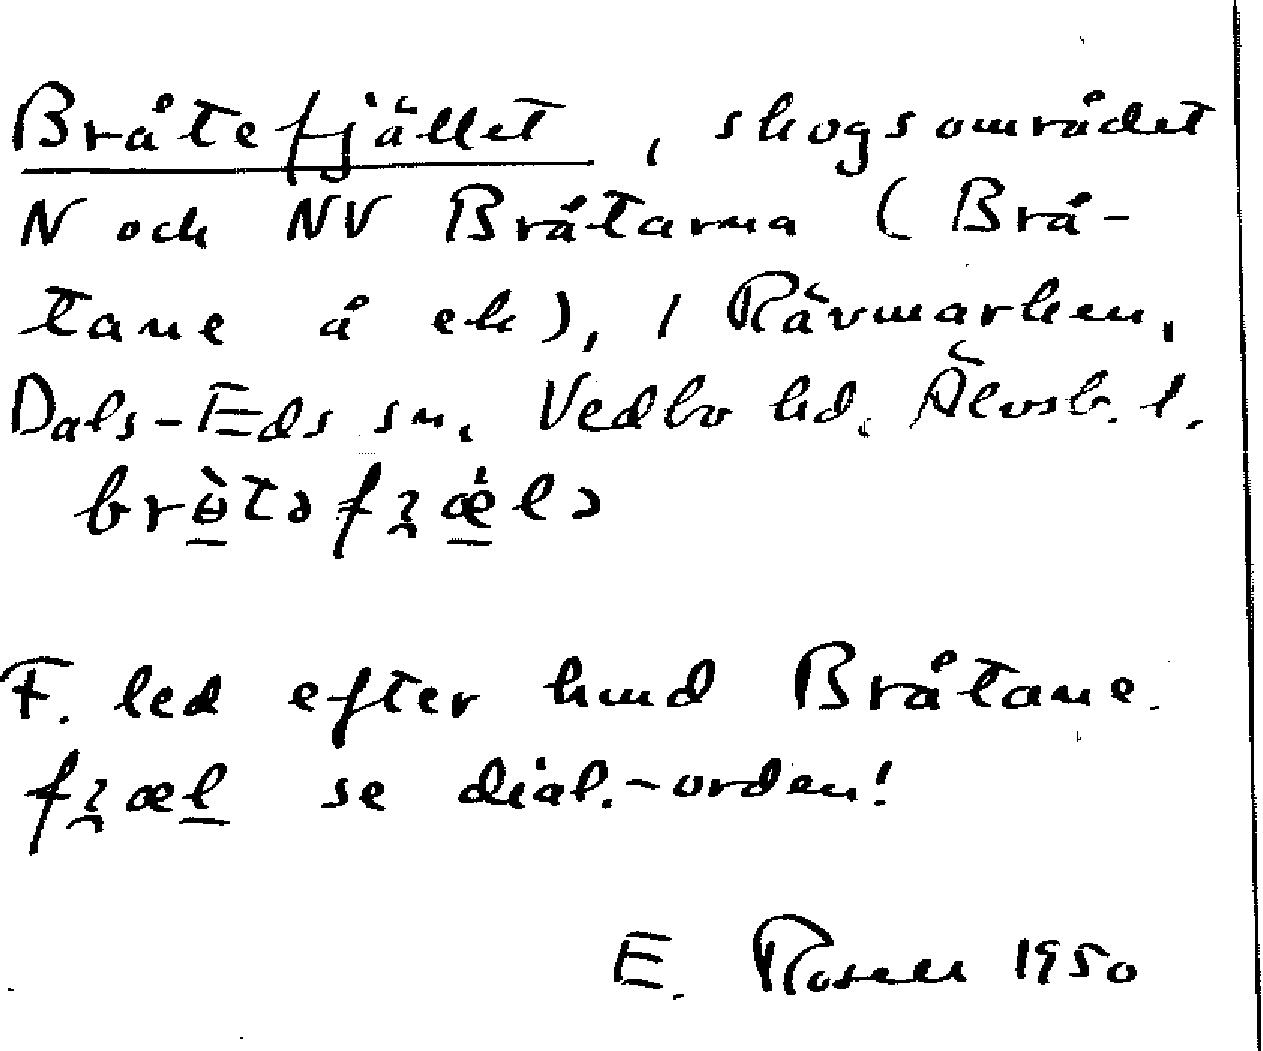 Bråtefjället, skogsområdet
N och NV Bråtarna (Brå-
tane å ek), i Rävmarken,
Dals-Eds sn, Vedbo hd. Älvsb. l.

F. led efter hmd Bråtane.
se dial.-orden!
E. Rosell 1950